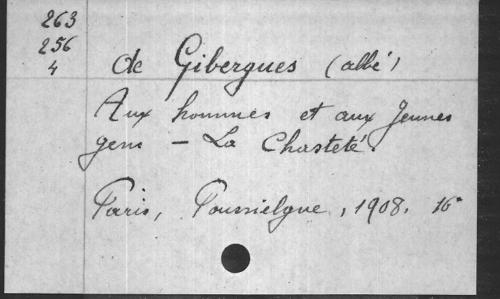 263
256
4
de Gibergues (abbé)
Aux hommes et aux Jeunes
gens – La Chasteté.
Paris, Poussielgue, 1908. 16°